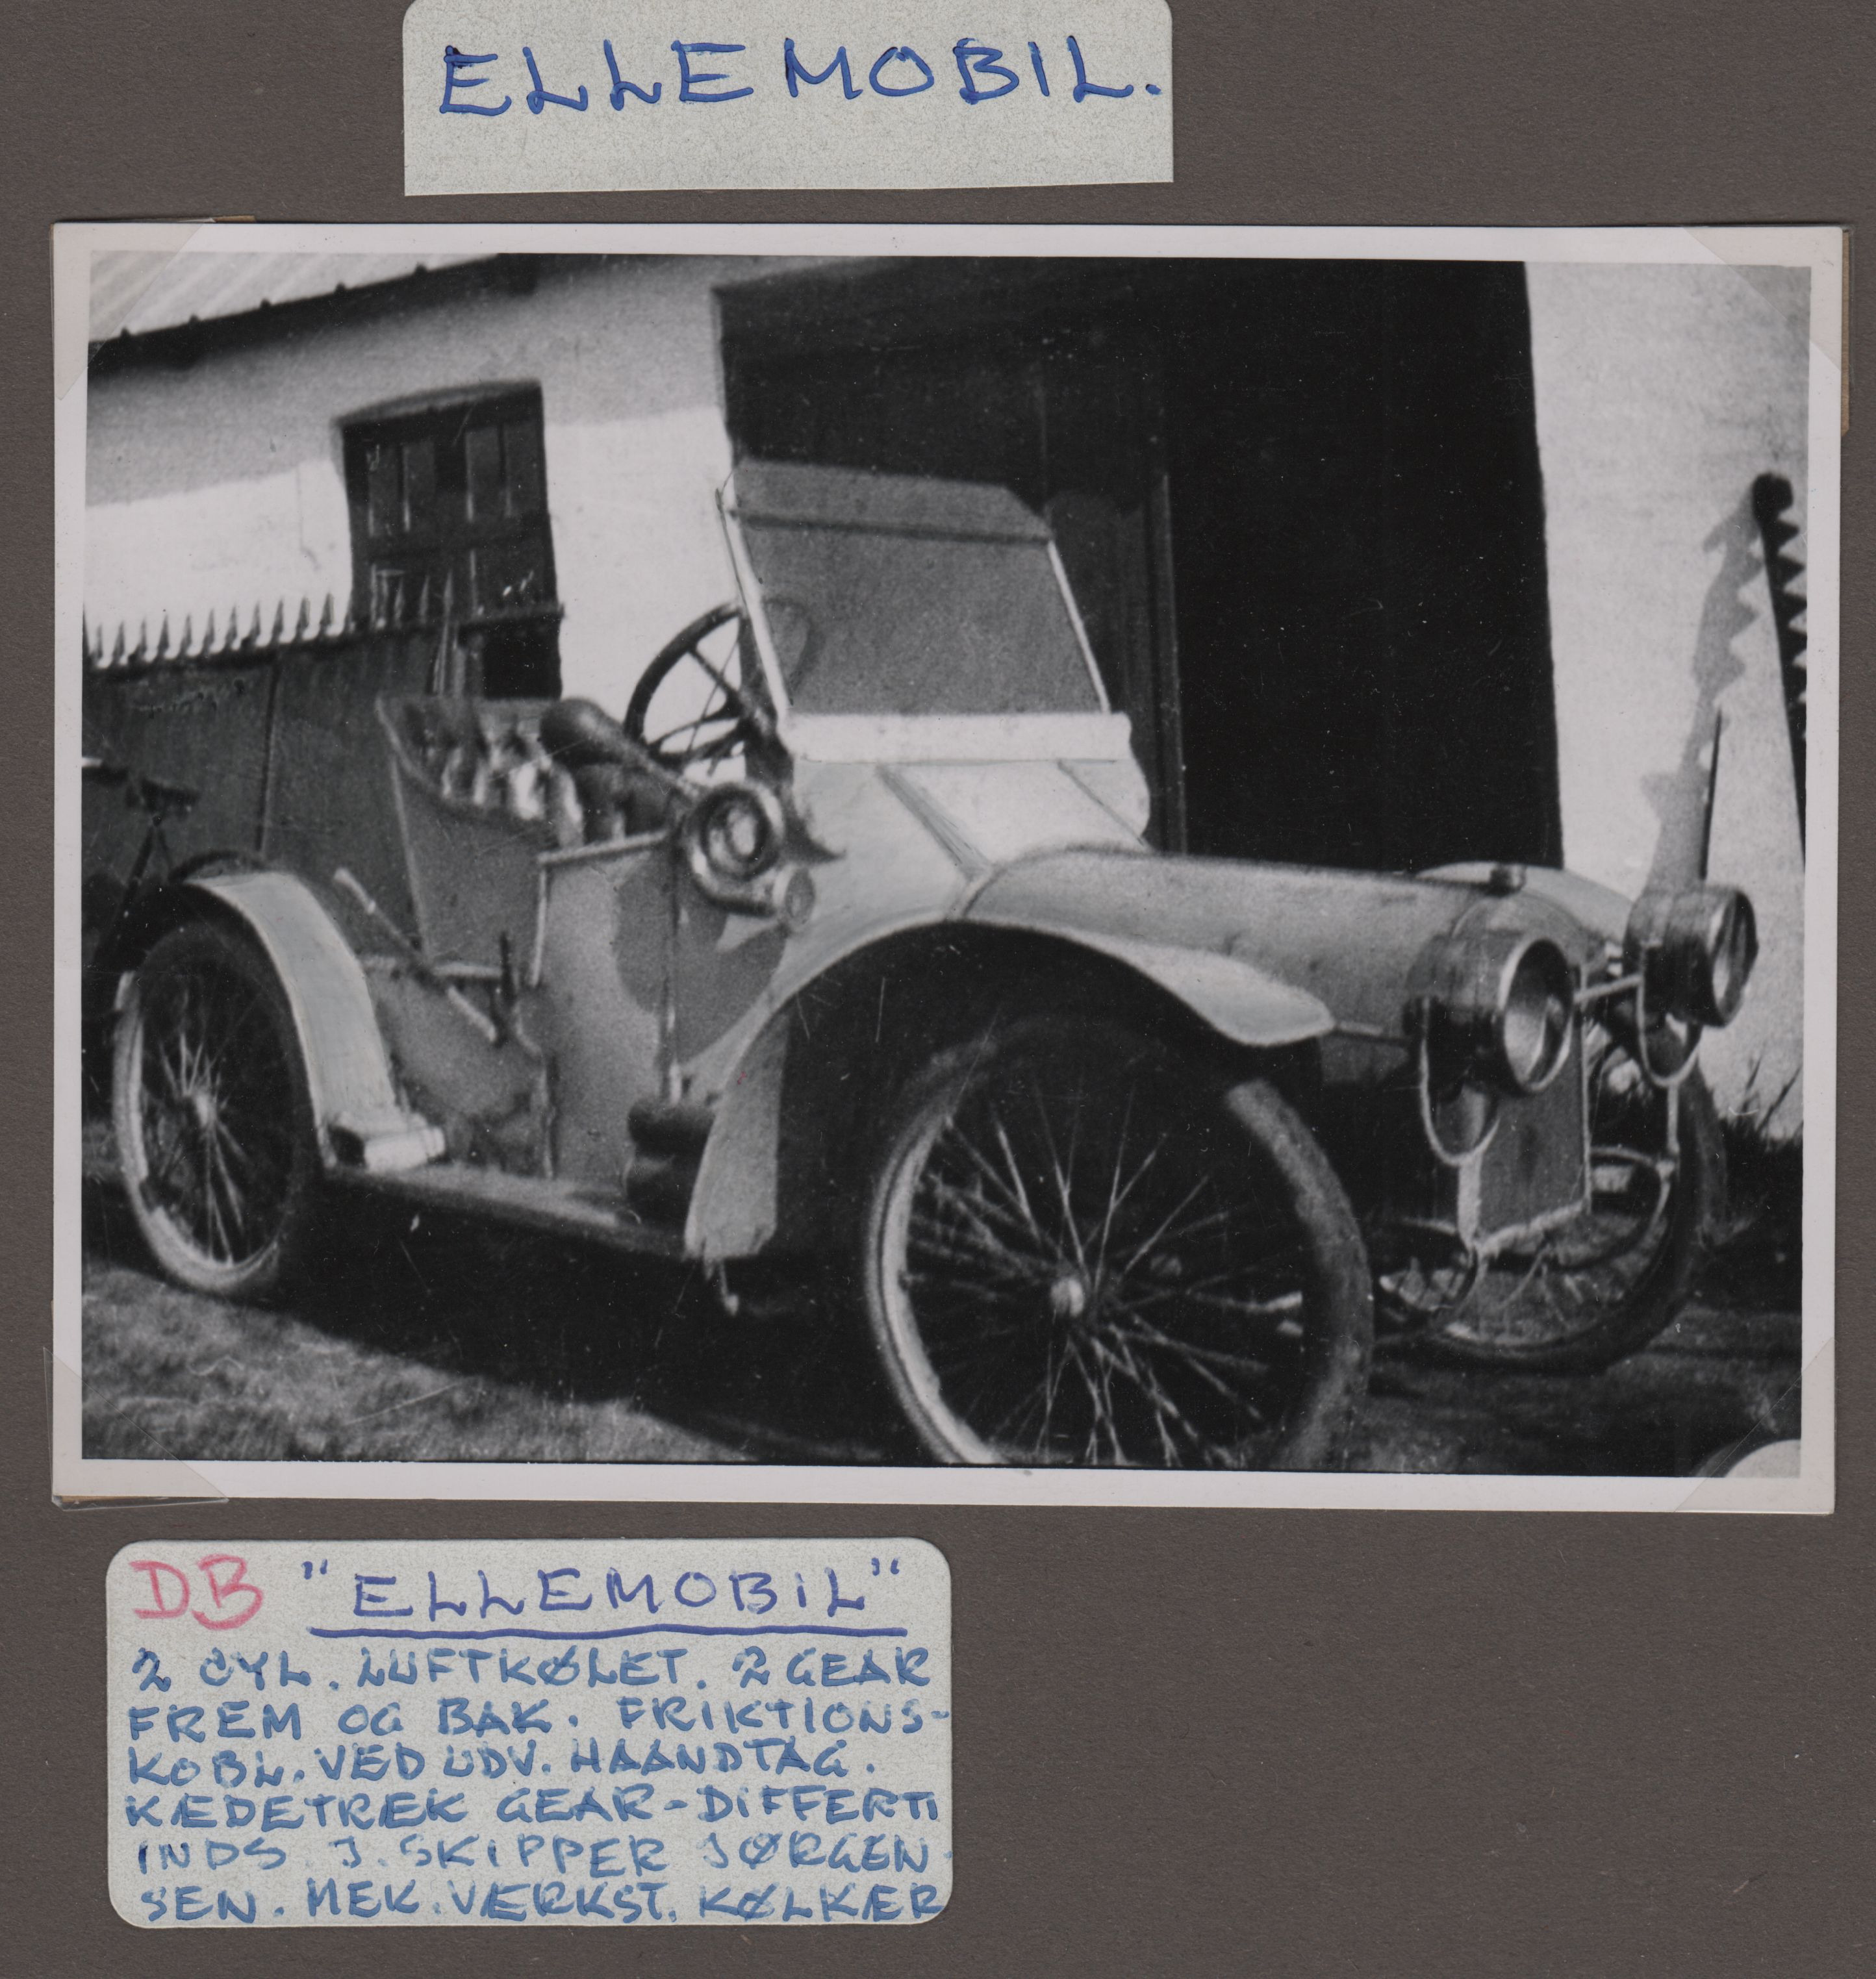 ELLEMOBIL.
DB "ELLEMOBIL"
2 CYL. LUFTKØLET. 2 GEAR
FREM OG BAK. FRIKTIONS-
KOBL. VED UDV. HAANDTAG.
KÆDETRÆK GEAR-DIFFERTI
INDS. J. SKIPPER JØRGEN-
SEN. MEK. VÆRKST. KØLKÆR